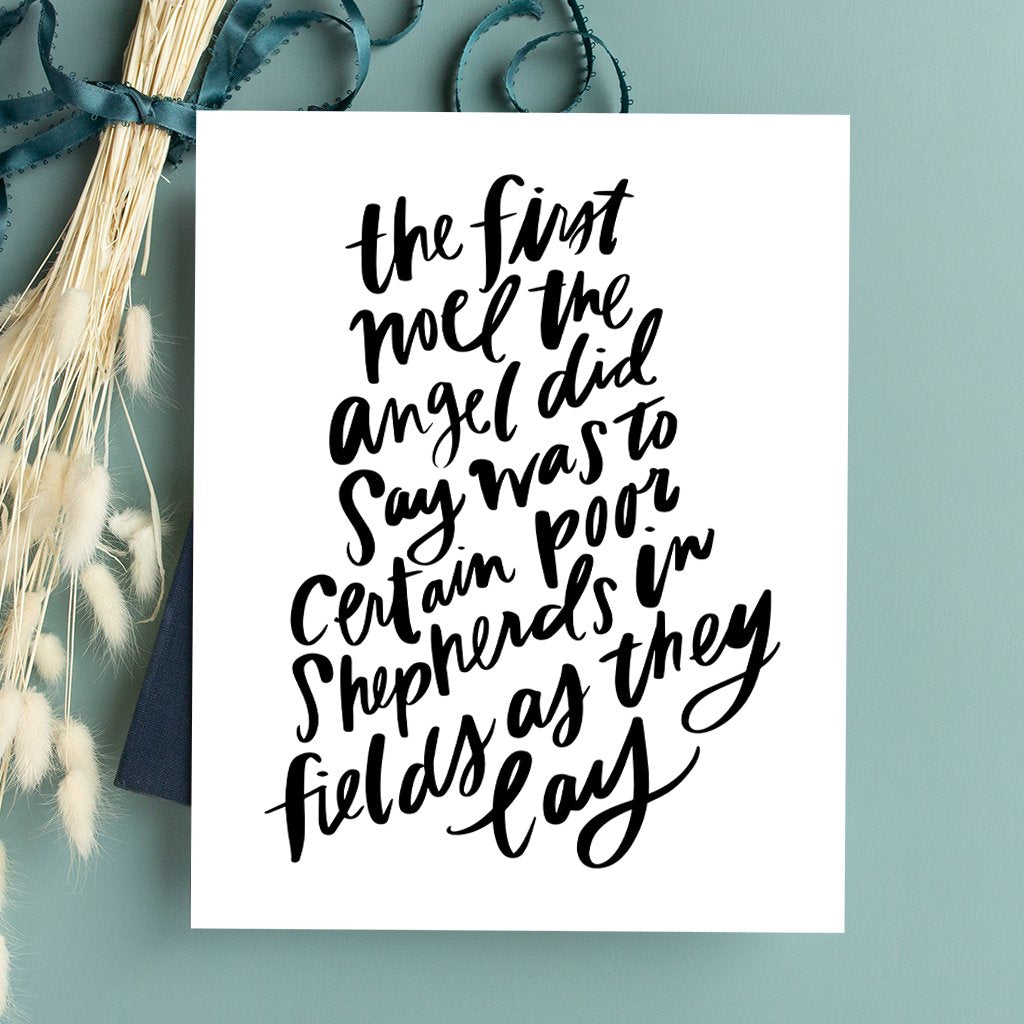 the first
noel the
angel did
say was to
certain poor
shepherds in
fields as they
lay